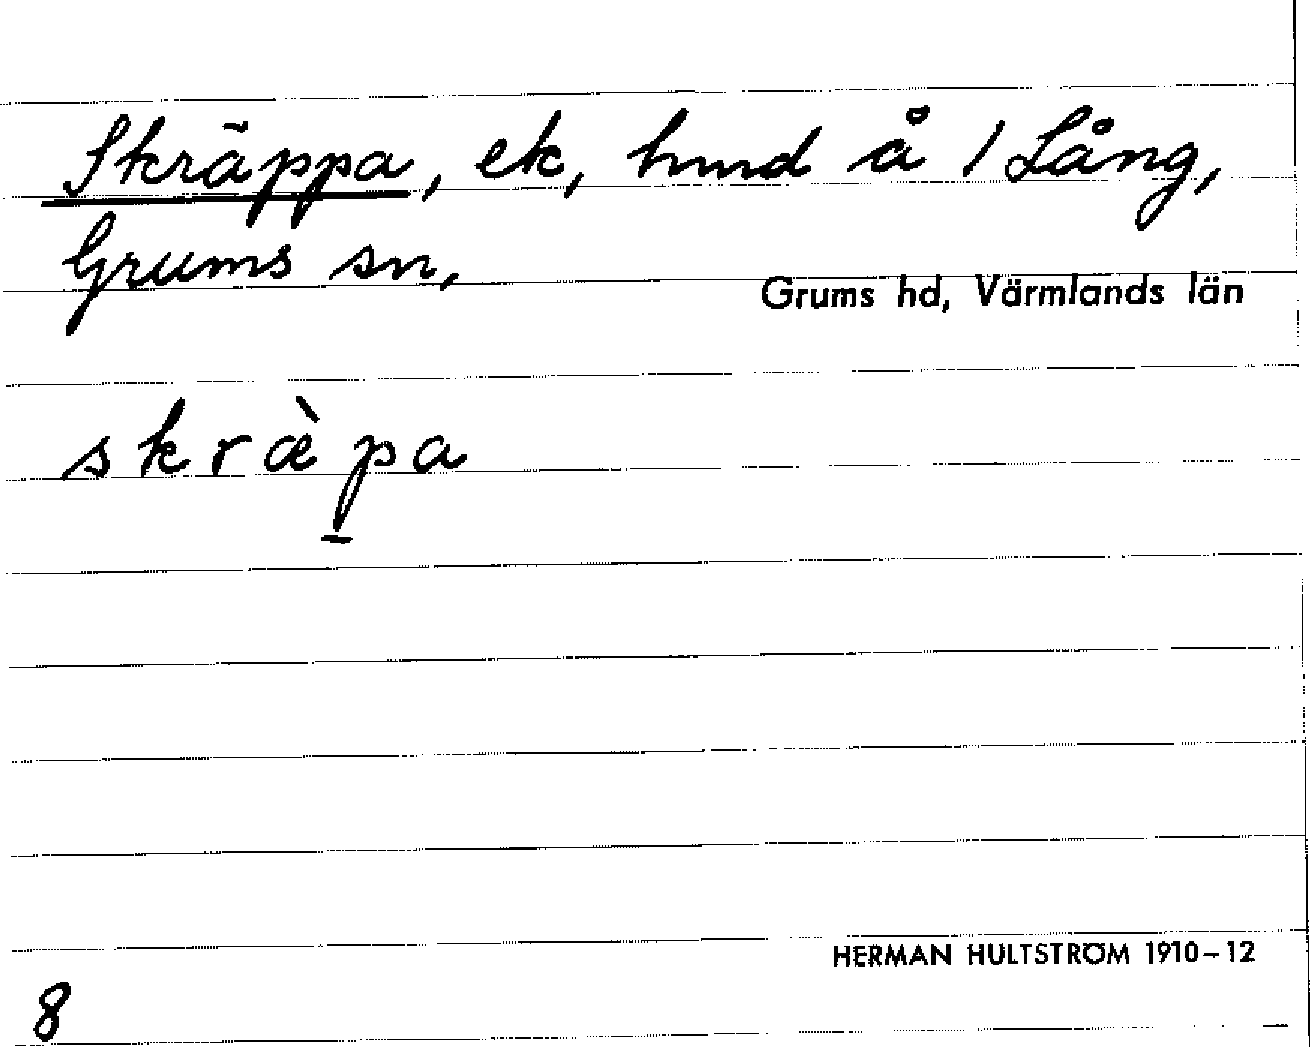 Skräppa, ek, hmd å 1 Lång,
Grums sn,
Grums hd, Värmlands län
skræ̀pa
HERMAN HULTSTRÖM 1910–12
8